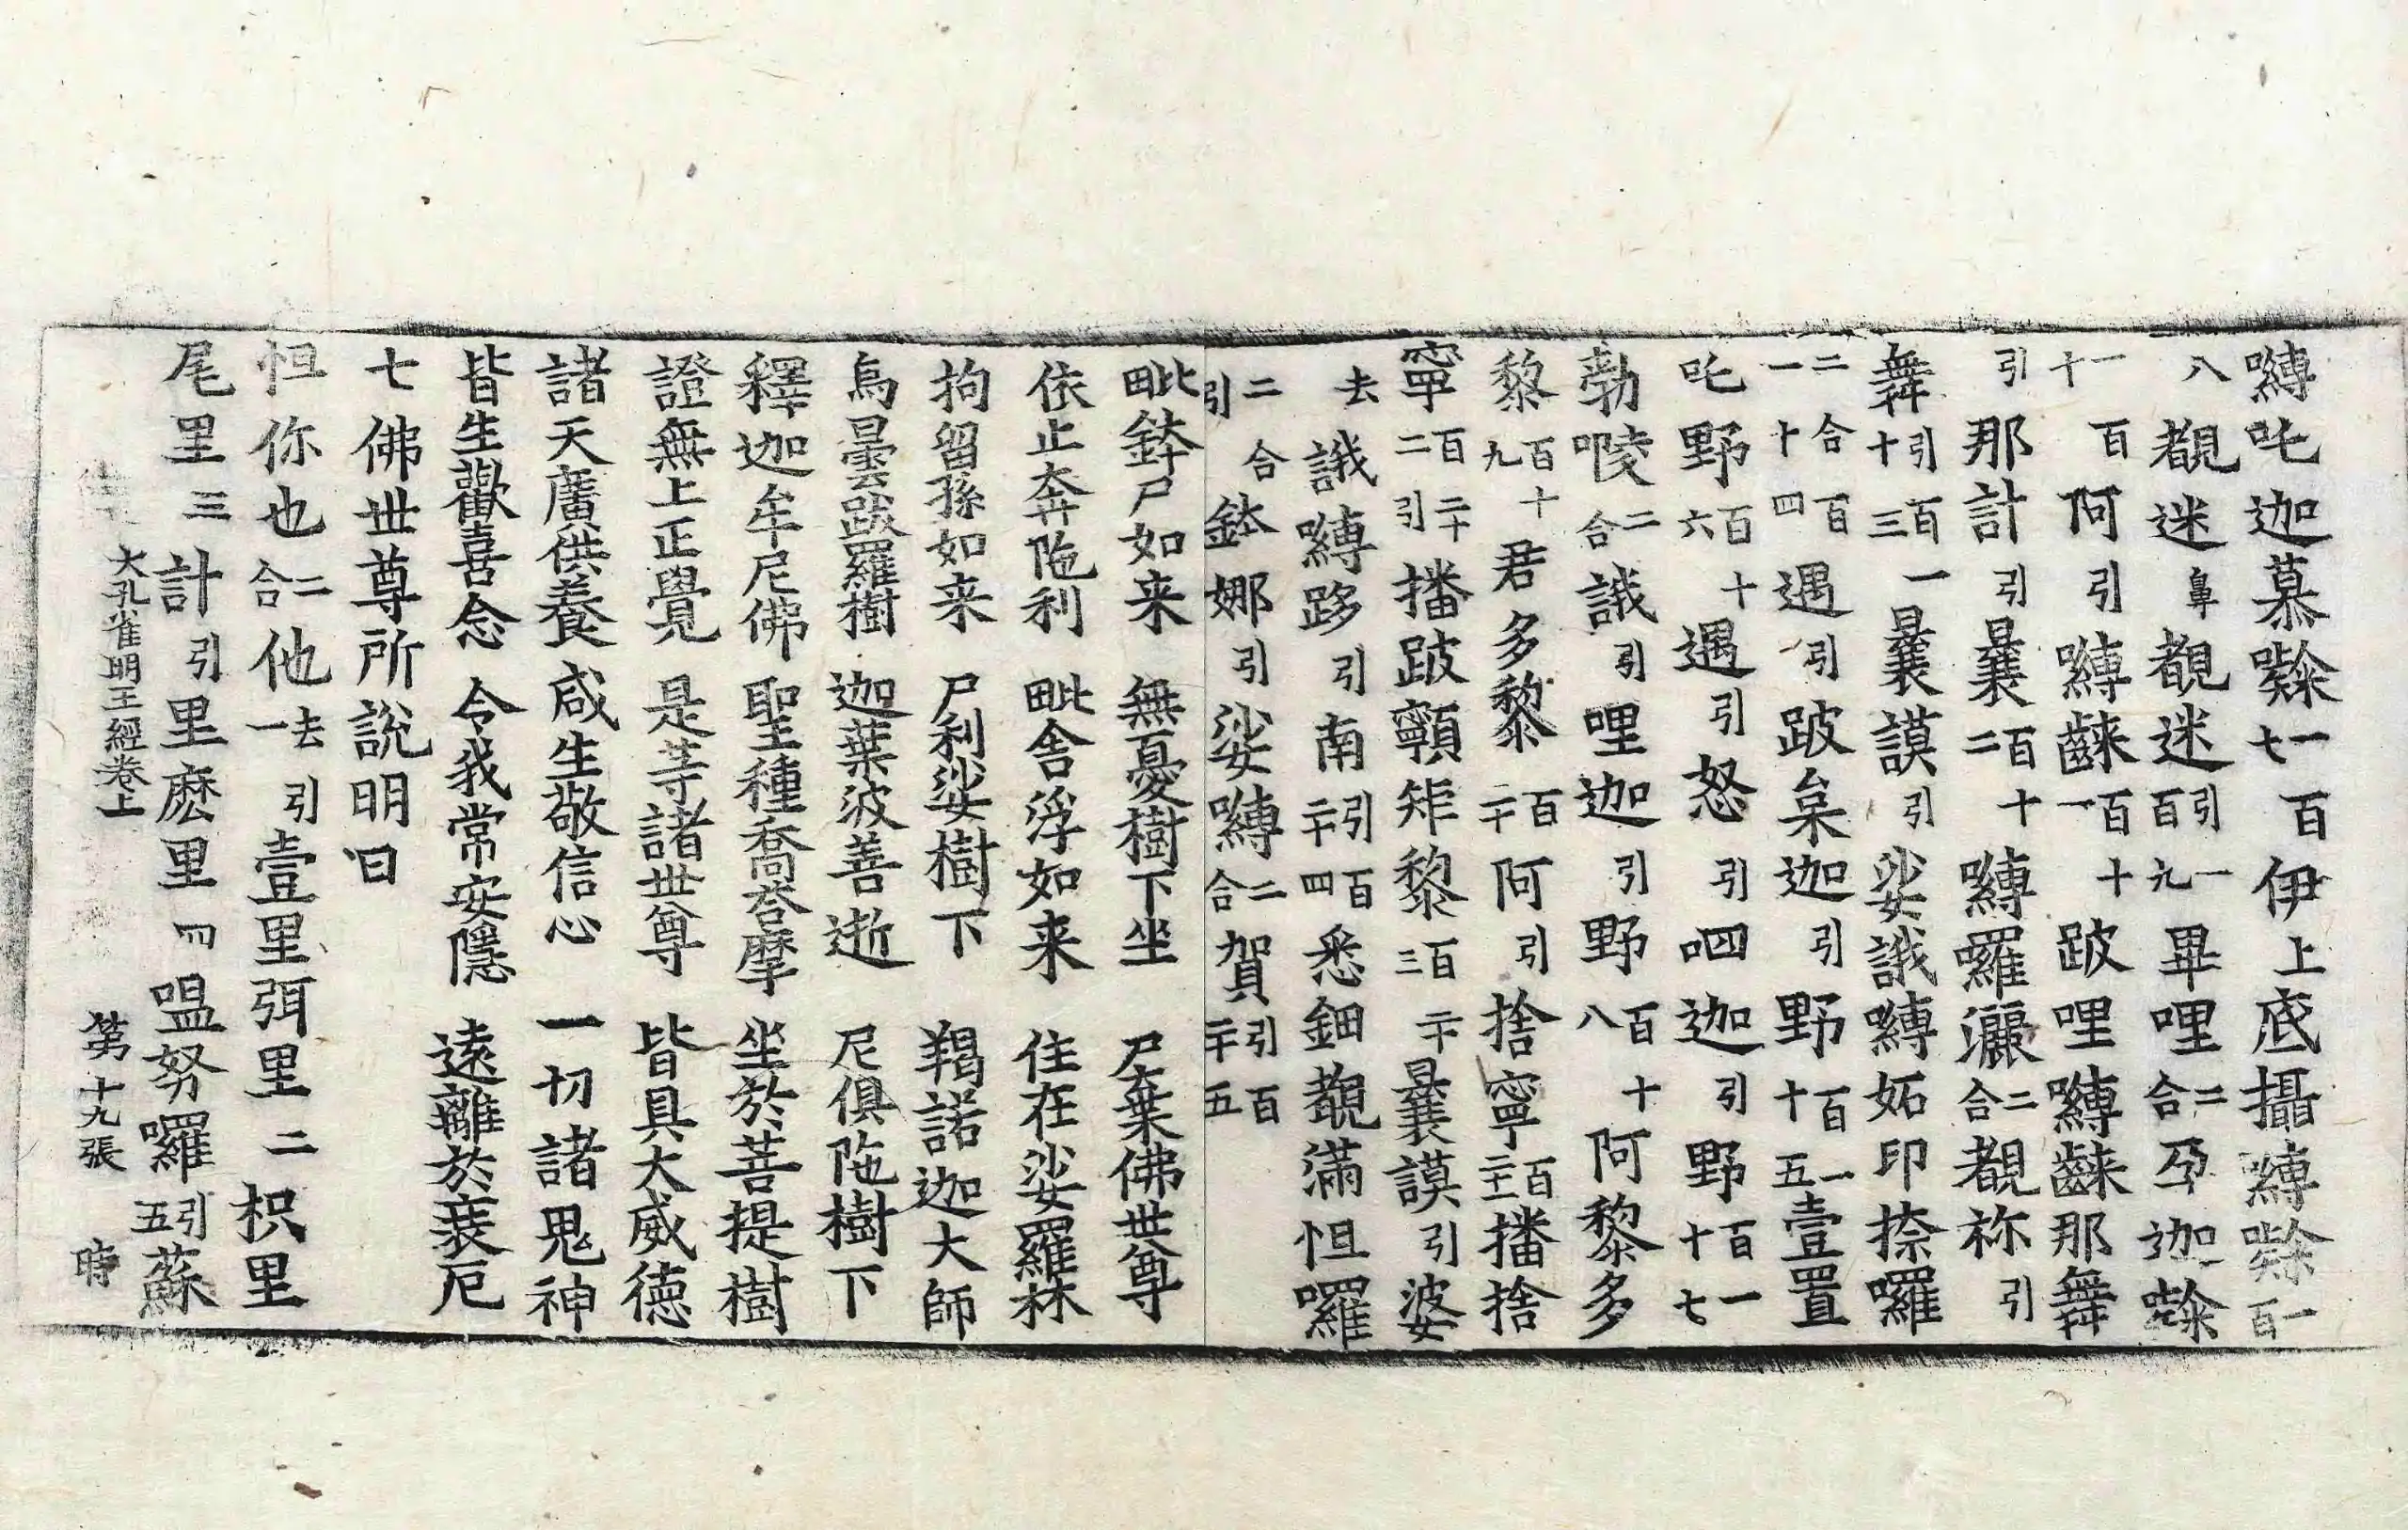 嚩吒迦慕㗚七一百伊上底攝嚩㗚百一
八覩迷鼻覩迷引一百九畢哩二合孕迦㗚
十一百阿引嚩䶖百十一跛哩嚩䶖那舞
引那計引曩百十二嚩囉灑二合覩祢引
舞引百一十三曩謨引娑誐嚩妬印捺囉
二合百一十四遇引跛枲迦引野百一十五壹置
吒野百十六遇引怒引呬迦引野一百十七
勃㖫二合誐引哩迦引野百十八阿黎多
黎百十九君多黎百二十阿引捨寧百二十一播捨
寧百二十二引播跛顐矩黎百二十三曩謨引婆
去誐嚩跢引南引百二十四悉鈿覩滿怛囉
二合引鉢娜引娑嚩二合賀引百二十五
毗鉢尸如来　無憂樹下坐　尸棄佛世尊
依止奔陁利　毗舍浮如来　住在娑羅林
拘留孫如来　尸利娑樹下　羯諾迦大師
烏曇跋羅樹　迦葉波善逝　尼俱陁樹下
釋迦牟尼佛　聖種喬荅摩　坐於菩提樹
證無上正覺　是等諸世尊　皆具大威德
諸天廣供養　咸生敬信心　一切諸鬼神
皆生歡喜念　令我常安隱　遠離於衰厄
七佛世尊所說明曰
怛你也二合他去引一壹里弭里二枳里
尾里三計引里麽里四嗢努囉引五蘇
大孔雀明王經卷上　第十九張　時